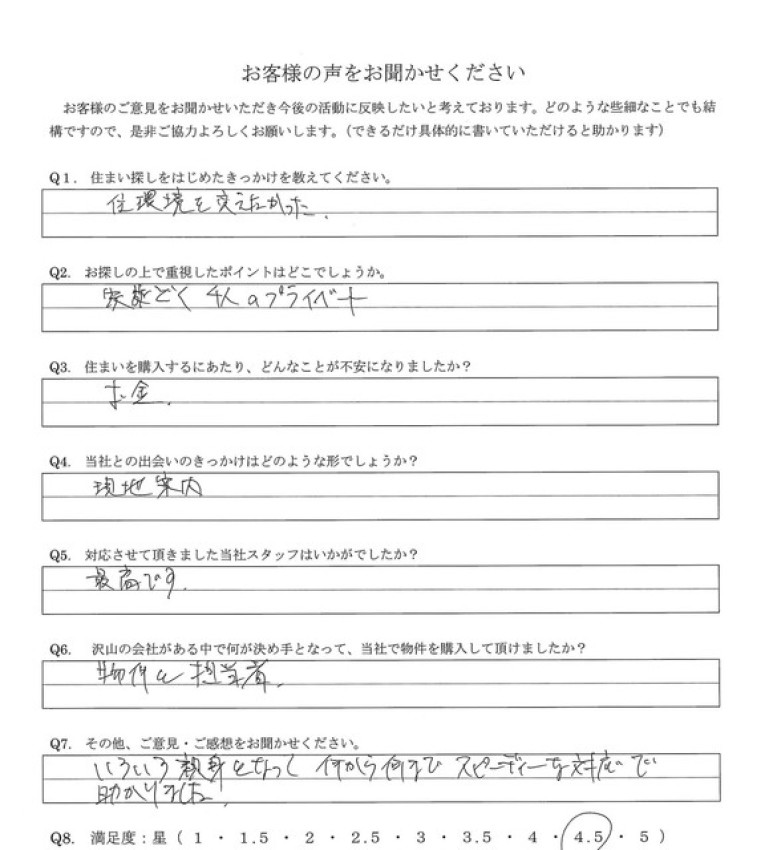 お客様の声をお聞かせください
お客様のご意見をお聞かせいただき今後の活動に反映したいと考えております。どのような些細なことでも結
構ですので、是非ご協力よろしくお願いします。（できるだけ具体的に書いていただけると助かります）
Q1. 住まい探しをはじめたきっかけを教えてください。
住環境を変えたかった.
Q2. お探しの上で重視したポイントはどこでしょうか。
家族 4人のプライベート
Q3. 住まいを購入するにあたり、どんなことが不安になりましたか？
お金.
Q4. 当社との出会いのきっかけはどのような形でしょうか？
現地案内
Q5. 対応させて頂きました当社スタッフはいかがでしたか？
最高です.
Q6. 沢山の会社がある中で何が決め手となって、当社で物件を購入して頂けましたか？
物件と担当者.
Q7. その他、ご意見・ご感想をお聞かせください。
いろいろ親身となって 何から何まで スピーディーな対応で
助かりました.
Q8. 満足度：星（ 1 ・ 1.5 ・ 2 ・ 2.5 ・ 3 ・ 3.5 ・ 4 ・ 4.5 ・ 5 ）